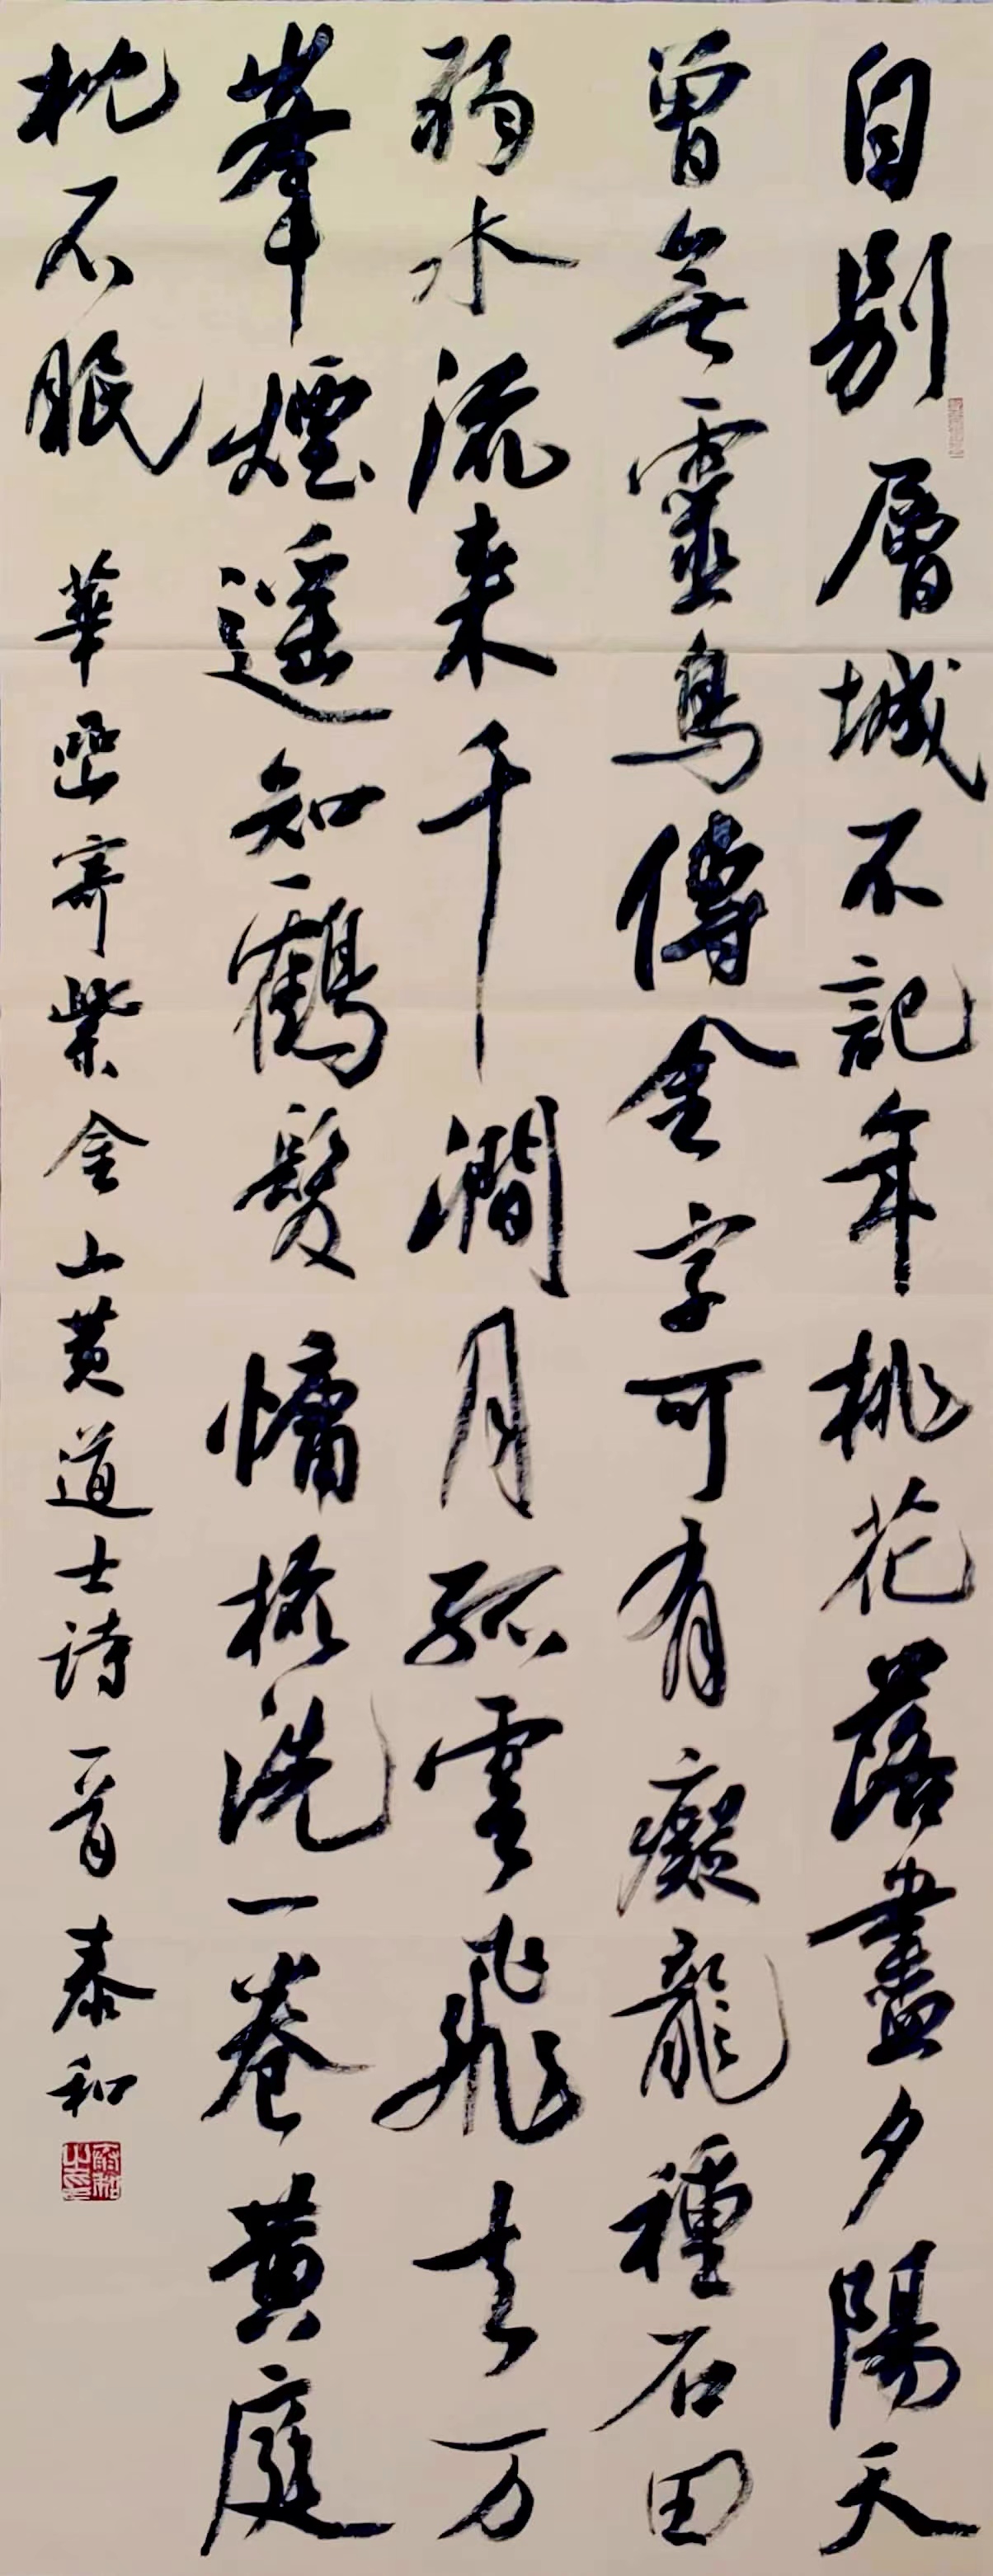 自别層城不記年桃花落盡夕陽天
曾無靈鳥傳金字可有癡龍種石田
弱水流来千澗月孤雲飛去万
峯煙遥知鶴髮慵梳洗一卷黄庭
枕石眠
華嵒寄紫金山黄道士詩一首 泰和